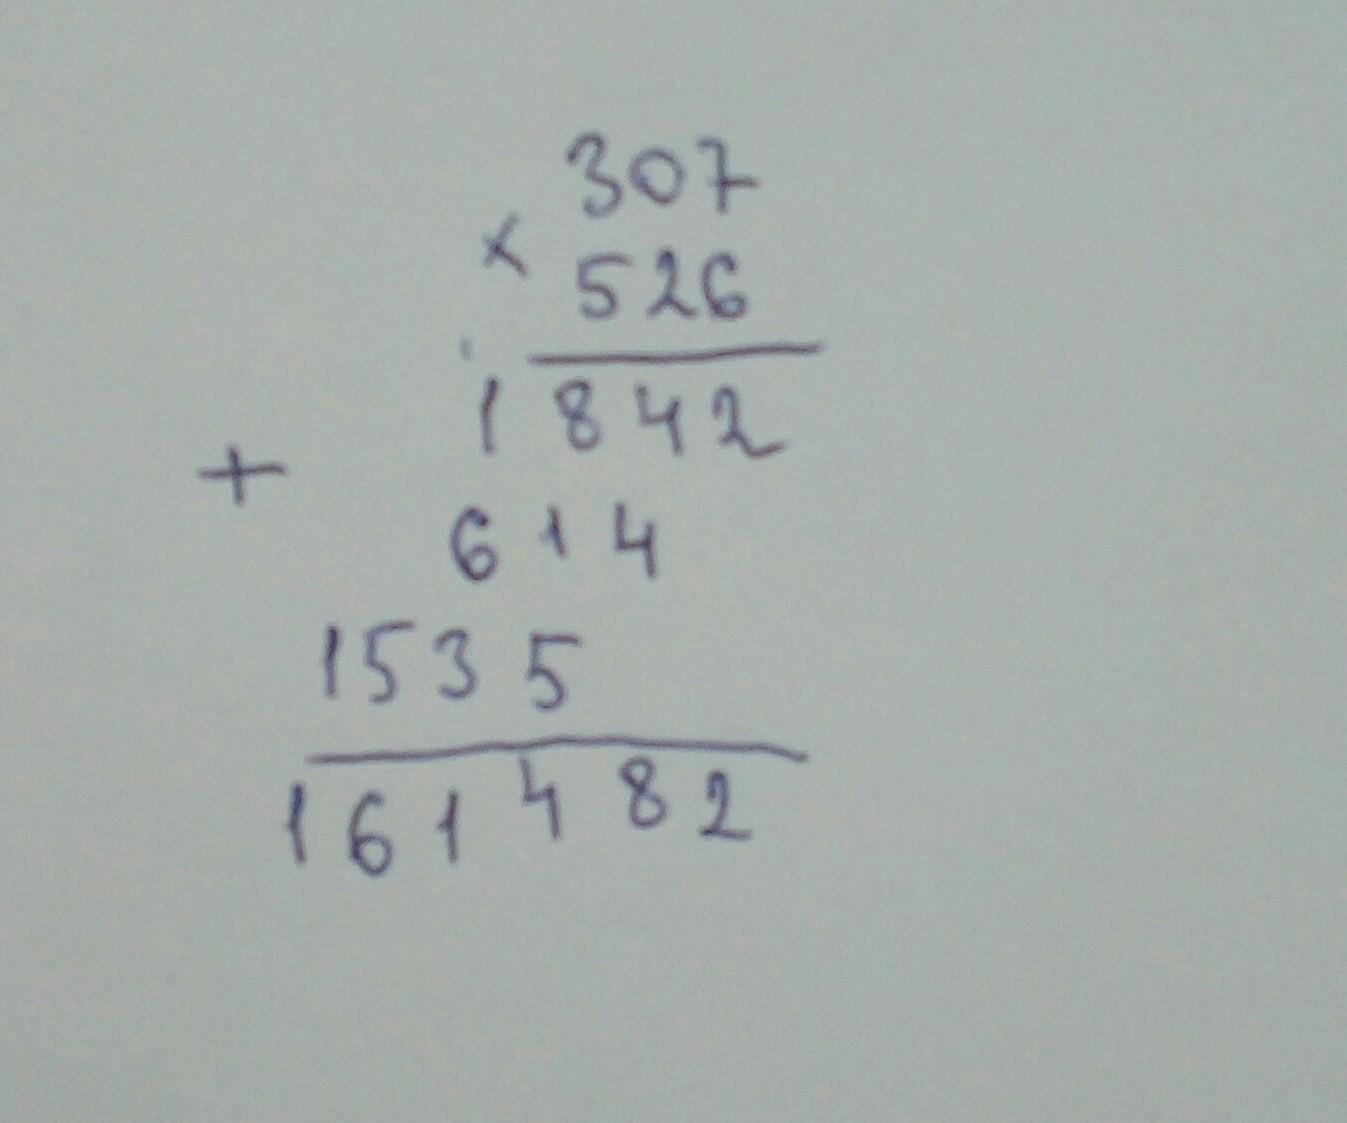 307
× 526
1842
+
614
1535
161482